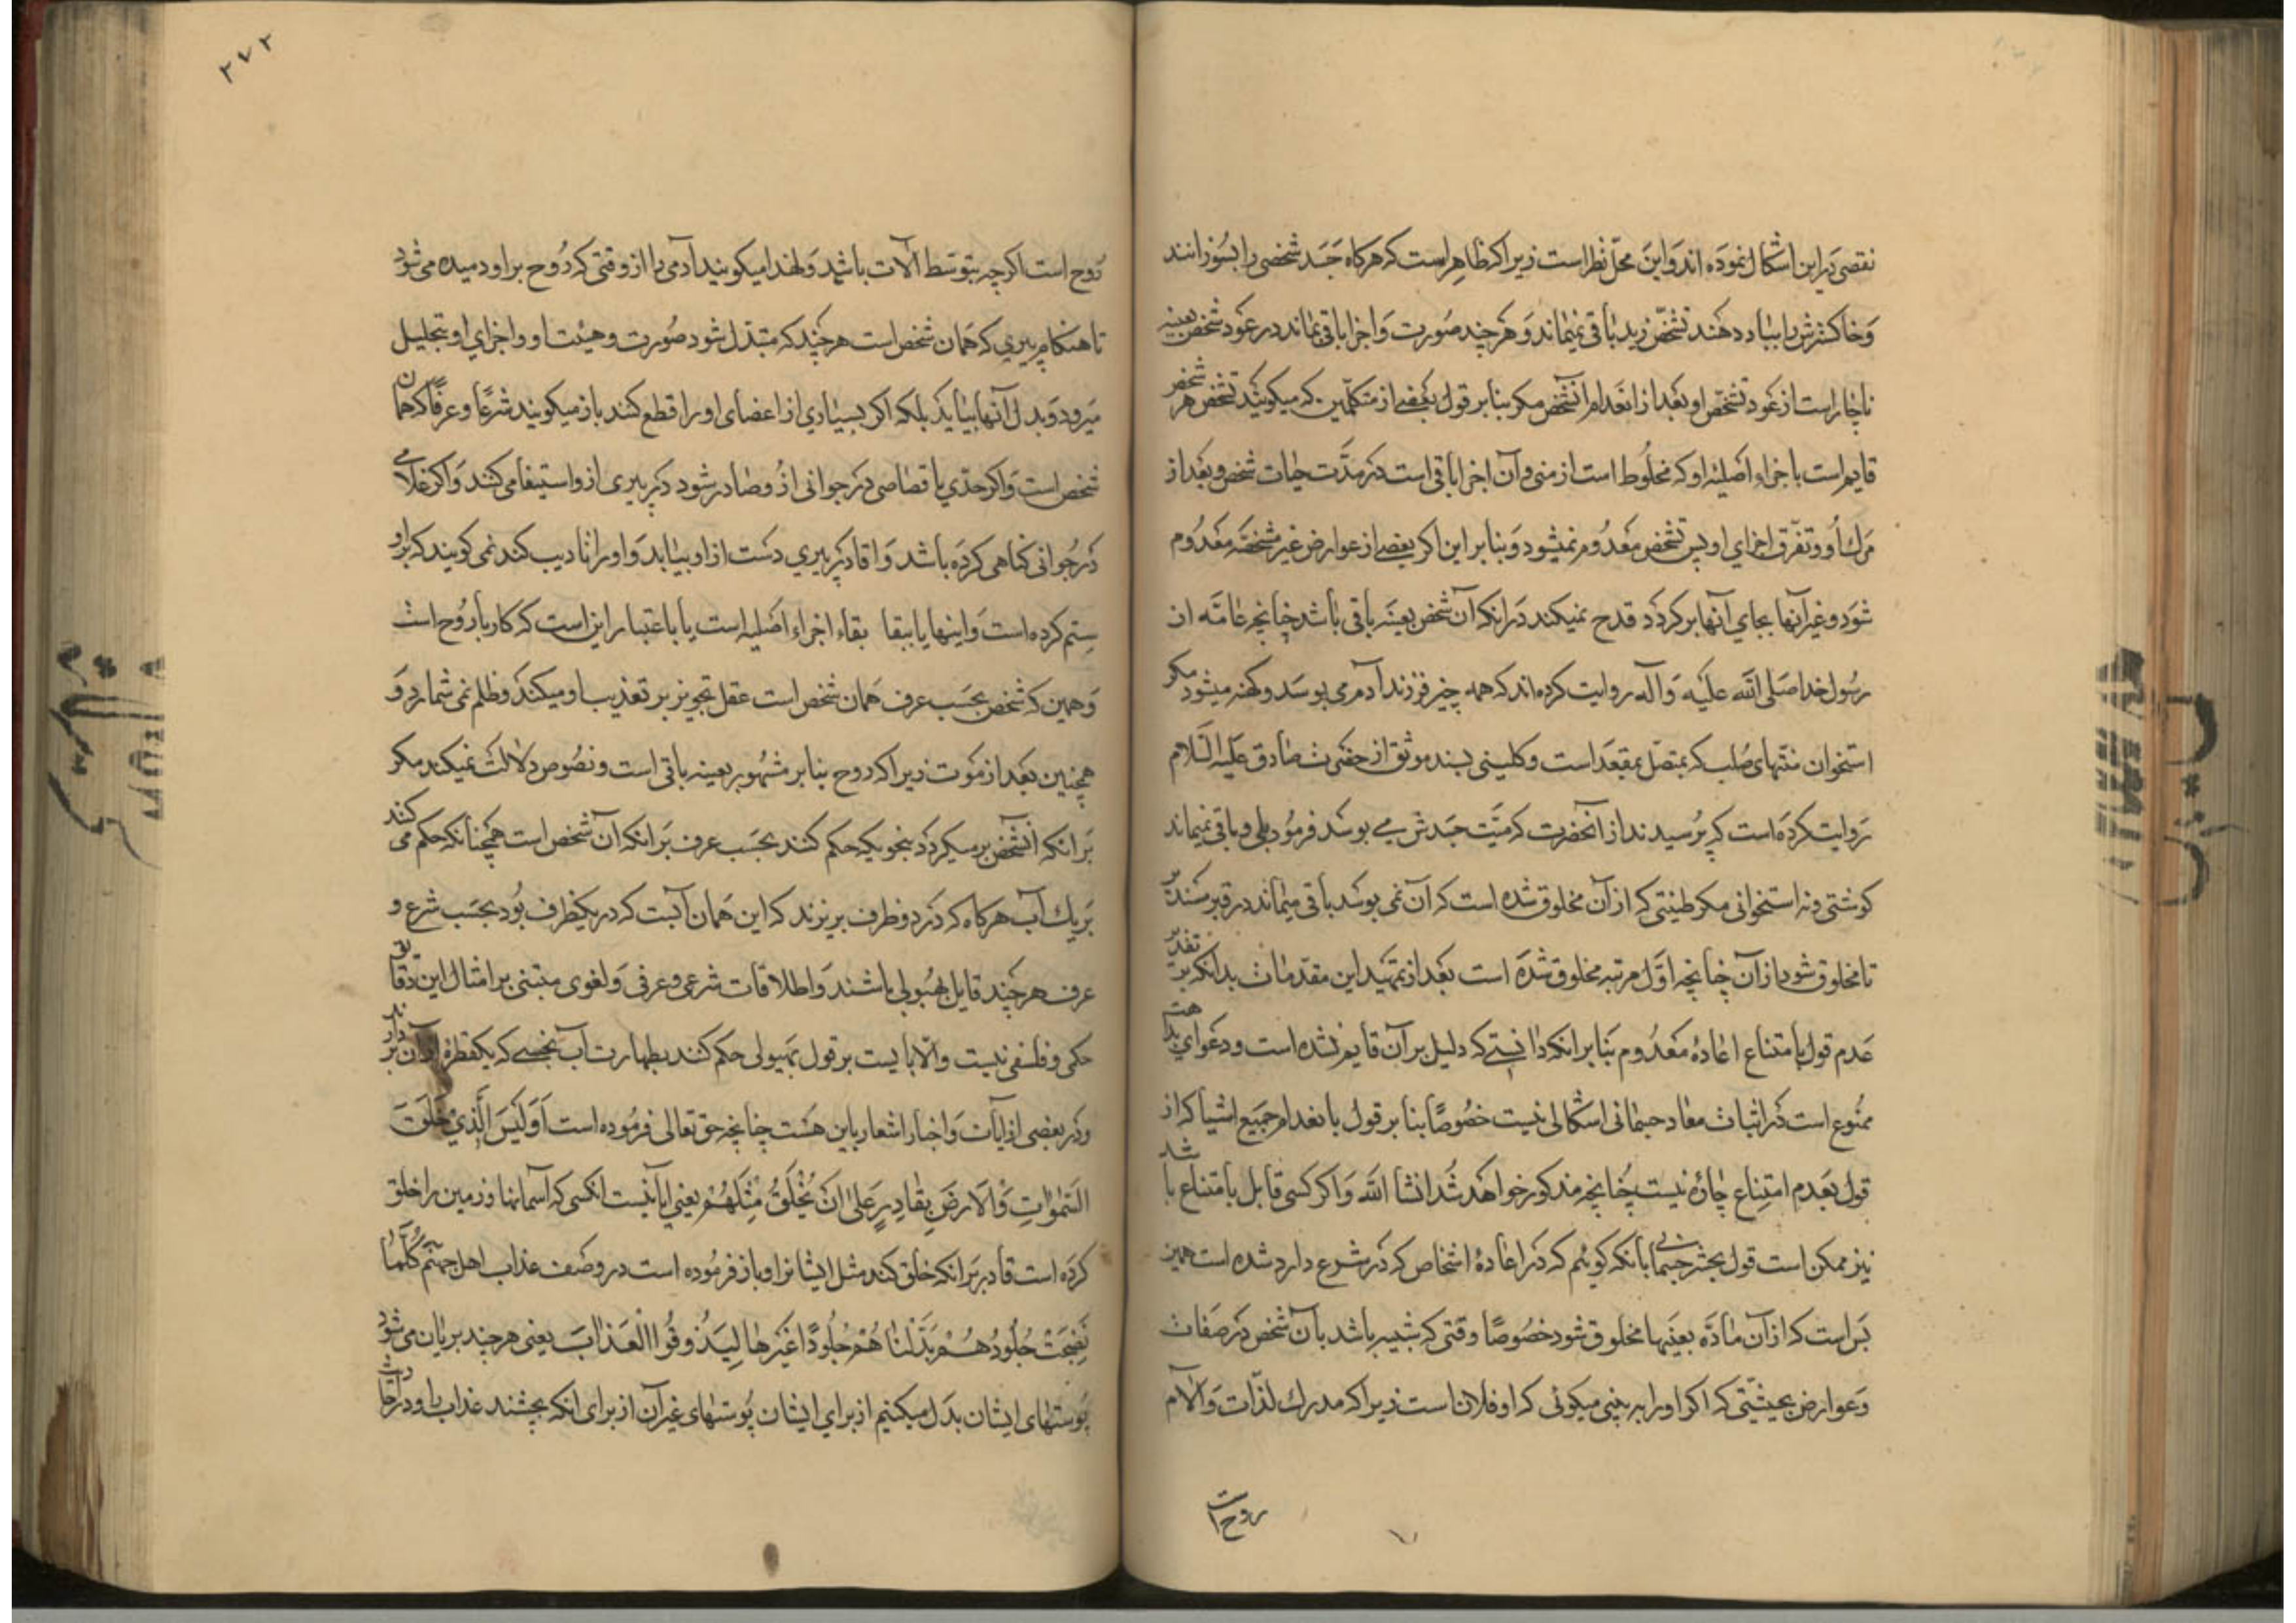 نقصی در این اشکال نموده اند و این محلّ نظر است زیرا که ظاهر است که هرگاه جسد شخصی را بسوزانند
و خاکسترش را بباد دهند تشخّص زید باقی نمیماند و هر چند صورت و اجزا باقی بماند در عود شخص بعینه
ناچار است از عود تشخّص او بعد از انعدام آنشخص مکر بنا بر قول بعضی از متکلّمین که میکویند تشخص هر شخص
قایم است باجزاء اصلیّه او که مخلوط است از منی و آن اجزا باقی است در مدّت حیات شخص و بعد از
مرك او و تفرّق اجزای او پس تشخص معدوم نمیشود و بنا بر این اکر بعضی از عوارض غیر مشخصه معدوم
شود و غیر آنها بجای آنها برکردد قدح نمیکند در انکه آن شخص بعینه باقی باشد چنانچه عامّه از
رسول خدا صلی الله علیه و آله روایت کرده اند که همه چیز فرزند آدم می بوسد و کهنه میشود مکر
استخوان منتهای صلب که متصل بمقعد است و کلینی بسند موثق از حضرت صادق علیه السّلام
روایت کرده است که پرسیدند از آنحضرت که میّت جسدش می بوسد فرمود بلی و باقی نمیماند
کوشتی و نه استخوانی مکر طینتی که از آن مخلوق شده است که آن نمی بوسد باقی میماند در قبر مستدیر
تا مخلوق شود از آن چنانچه اوّل مرتبه مخلوق شده است بعد از تمهید این مقدّمات بدانکه بر تقدیر
عدم قول بامتناع اعادهٔ معدوم بنا بر انکه دانستی که دلیل بر آن قایم نشده است و دعوای بداهت
ممنوع است در اثبات معاد جسمانی اشکالی نیست خصوصًا بنا بر قول بانعدام جمیع اشیا که از
قول بعدم امتناع چاره نیست چنانچه مذکور خواهد شد انشا الله و اکر کسی قایل بامتناع باشد
نیز ممکن است قول بحشر جسمانی بآنکه کوئیم که در اعادهٔ اشخاص که در شرع وارد شده است همین
بس است که از آن مادّه بعینها مخلوق شود خصوصًا وقتی که شبیه باشد بآن شخص در صفات
و عوارض بحیثیّتی که اکر او را ببینی میکوئی که او فلانست زیرا که مدرك لذّات و آلام
روح است
۲۷۲
روح است اکر چه بتوسّط آلات باشد و لهذا میکویند آدمی را از وقتی که روح بر او دمیده می شود
تا هنکام پیری که همان شخص است هر چند که متبدّل شود صورت و هیئت او و اجزای او بتحلیل
میرود و بدل آنها بیاید بلکه اکر بسیاری از اعضای او را قطع کنند باز میکویند شرعًا و عرفًا که همان
شخص است و اکر حدّی یا قصاصی در جوانی از او صادر شود در پیری از او استیفا می کنند و اکر غلامی
در جوانی کناهی کرده باشد و آقا در پیری دست از او بیابد و او را تادیب کند نمی کویند که بر او
ستم کرده است و اینها یا ببقا بقاء اجزاء اصلیه است یا باعتبار این است که کار با روح است
و همین که شخص بحسب عرف همان شخص است عقل تجویز بر تعذیب او میکند و ظلم نمی شمارد و
همچنین بعد از موت زیرا که روح بنا بر مشهور بعینه باقی است و نصوص دلالت نمیکند مکر
بر انکه آنشخص برمیکردد بنحویکه حکم کنند بحسب عرف بر انکه آن شخص است همچنانکه حکم می کنند
بر یك آب هرکاه که در دو ظرف بریزند که این همان آبست که در یکظرف بود بحسب شرع و
عرف هر چند قایل بهیولی باشند و اطلاقات شرعی و عرفی و لغوی مبتنی بر امثال این دقایق
حکمی و فلسفی نیست و الّا بایست بر قول بهیولی حکم کنند بطهارت آب نجسی که یکقطره از آن بردارند
و در بعضی از آیات و اخبار اشعار باین هست چنانچه حق تعالی فرموده است اَوَلَیْسَ الَّذی خَلَقَ
السَّمٰوٰاتِ وَالْاَرْضَ بِقادِرٍ عَلیٰ اَنْ یَخْلُقَ مِثْلَهُمْ یعنی ایا نیست انکسی که آسمانها و زمین را خلق
کرده است قادر بر انکه خلق کند مثل ایشانرا و باز فرموده است در وصف عذاب اهل جهنّم کُلَّمٰا
نَضِجَتْ جُلُودُهُمْ بَدَّلْنٰاهُمْ جُلُودًا غَیْرَهٰا لِیَذُوقُوا الْعَذٰابَ یعنی هر چند بریان می شود
پوستهای ایشان بدل میکنیم از برای ایشان پوستهای غیر آن از برای انکه بچشند عذاب را و در احادیث